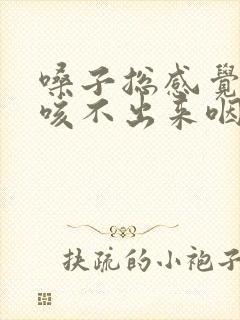 嗓子总感覺
咳不出来咽
扶疏的小袍子